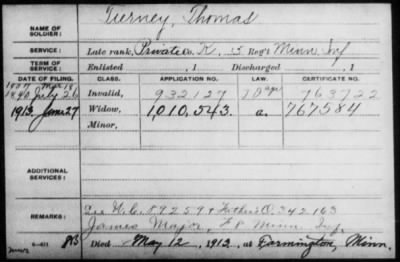 Tierney, Thomas
NAME OF SOLDIER:
SERVICE: Late rank, Private Co. K, 5 Reg't Minn. Inf
TERM OF SERVICE: Enlisted , 1 Discharged , 1
DATE OF FILING. CLASS. APPLICATION NO. LAW. CERTIFICATE NO.
1907 Mar 18
1890 July 26 Invalid, 932127 763722
1913 June 27 Widow, 1,010,543. a. 767584
Minor,
ADDITIONAL SERVICES:
REMARKS: 892594 Father's O. 342163
James Major, Minn Inf.
6-411
Died May 12, 1913, at Farmington, Minn.